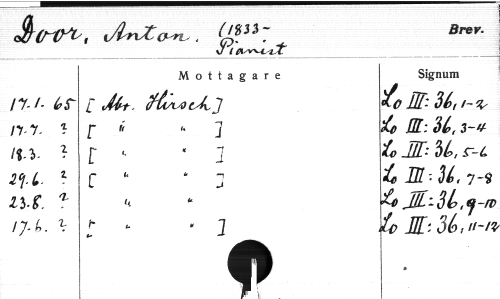 Door, Anton. (1833- Brev.
Pianist
Mottagare Signum
17.1. 65 [Abr. Hirsch] Lo III: 36, 1-2
17.7. ? [ " " ] Lo III: 36, 3-4
18.3. ? [ " " ] Lo III: 36, 5-6
29.6. ? [ " " ] Lo III: 36, 7-8
23.8. ? " " Lo III: 36, 9-10
17.6. ? [ " " ] Lo III: 36, 11-12